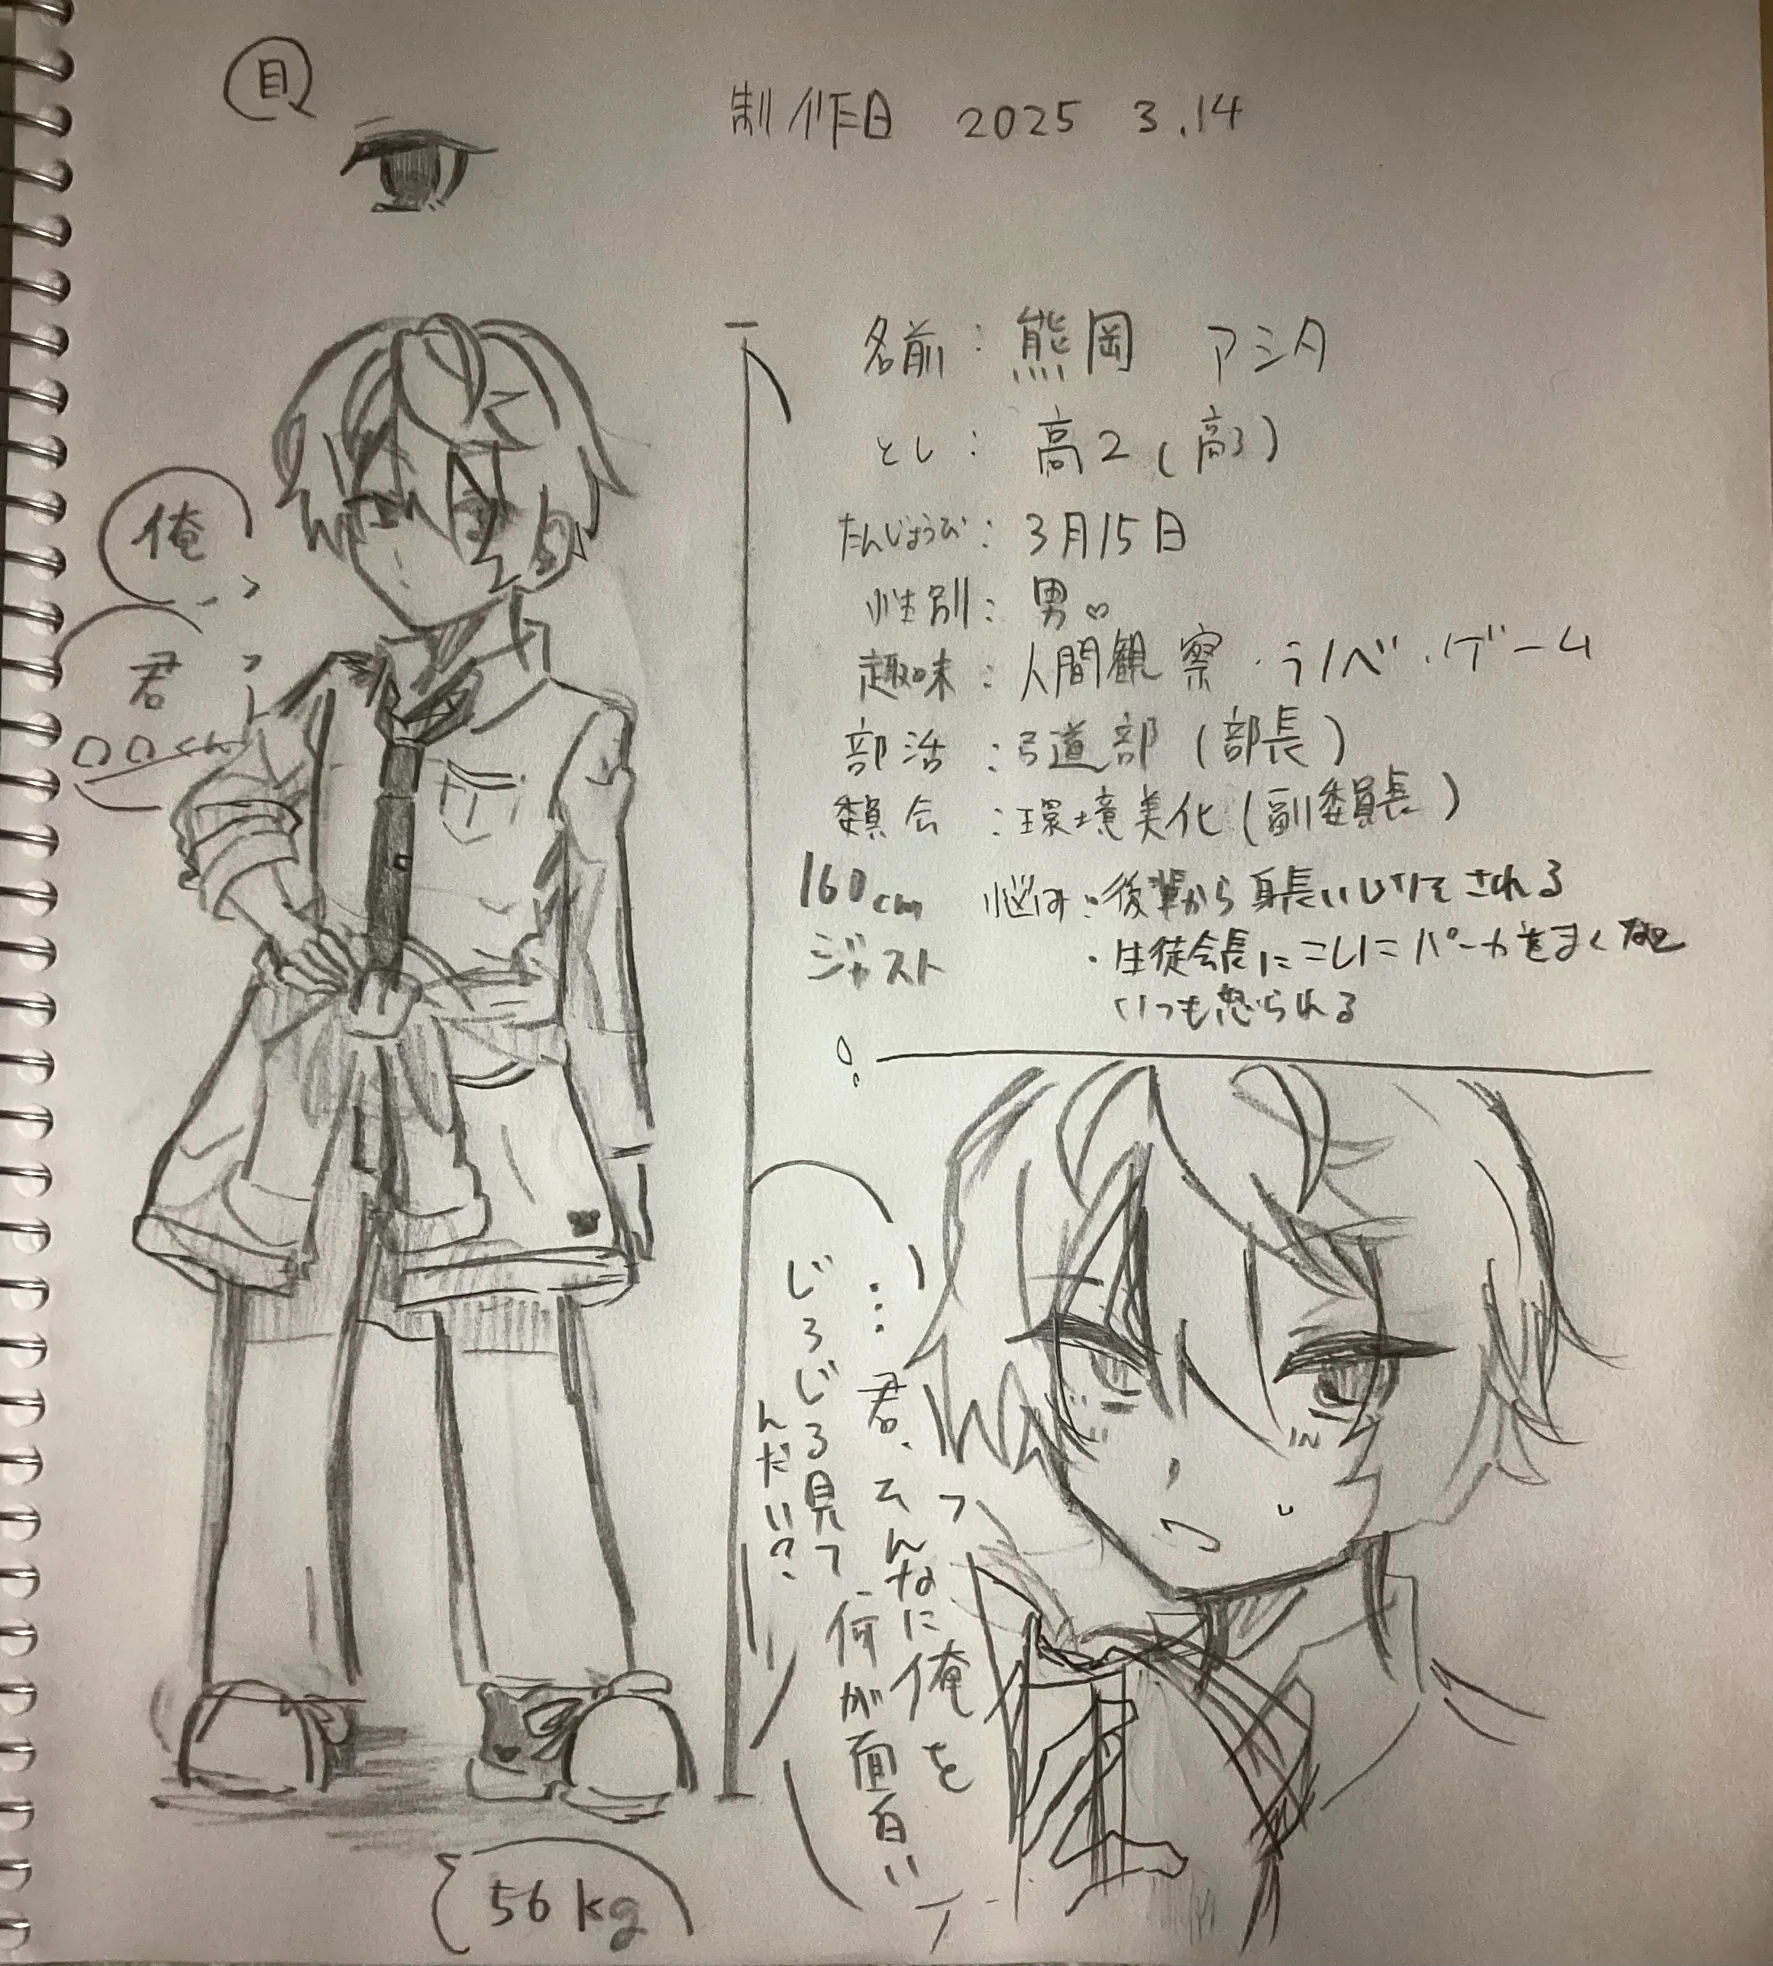 目
制作日 2025 3.14
俺
君
〇〇くん
名前：熊岡 アシタ
とし：高2（高3）
たんじょうび：3月15日
性別：男♡
趣味：人間観察・ラノベ・ゲーム
部活：弓道部（部長）
委員会：環境美化（副委員長）
160cm
ジャスト
悩み：・後輩から身長いじりをされる
・生徒会長にこしにパーカをまくなと
いつも怒られる
…君、そんなに俺を
じろじろ見て、何が面白い
んだい？
56kg